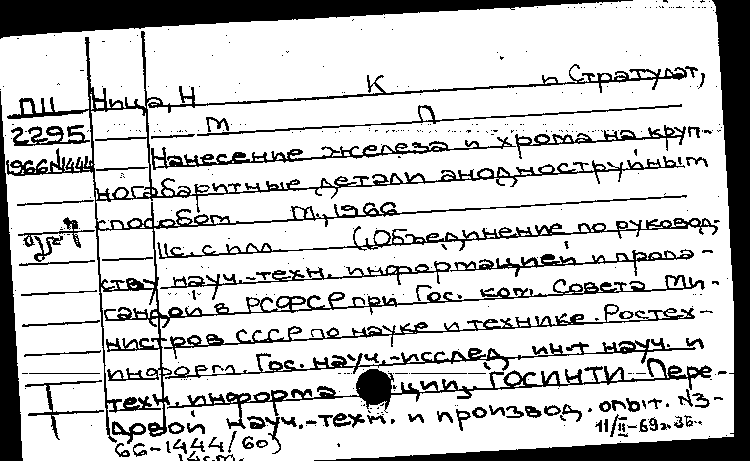 Ница, Н К и Стратулат,
П11
М П
2295
1966 N1444
Нанесение железа и хрома на круп-
ногабаритные детали анодноструйным
способом. М., 1966
11с. с илл. (Объединение по руковод-
ству науч.-техн. информацией и пропа-
гандой в РСФСР при Гос. ком. Совета Ми-
нистров СССР по науке и технике. Ростех-
информ. Гос. науч.-исслед. ин-т науч. и
техн. информации, ГОСИНТИ. Пере-
довой науч.-техн. и производ. опыт. №3-
66-1444/60)
11/II-69г.